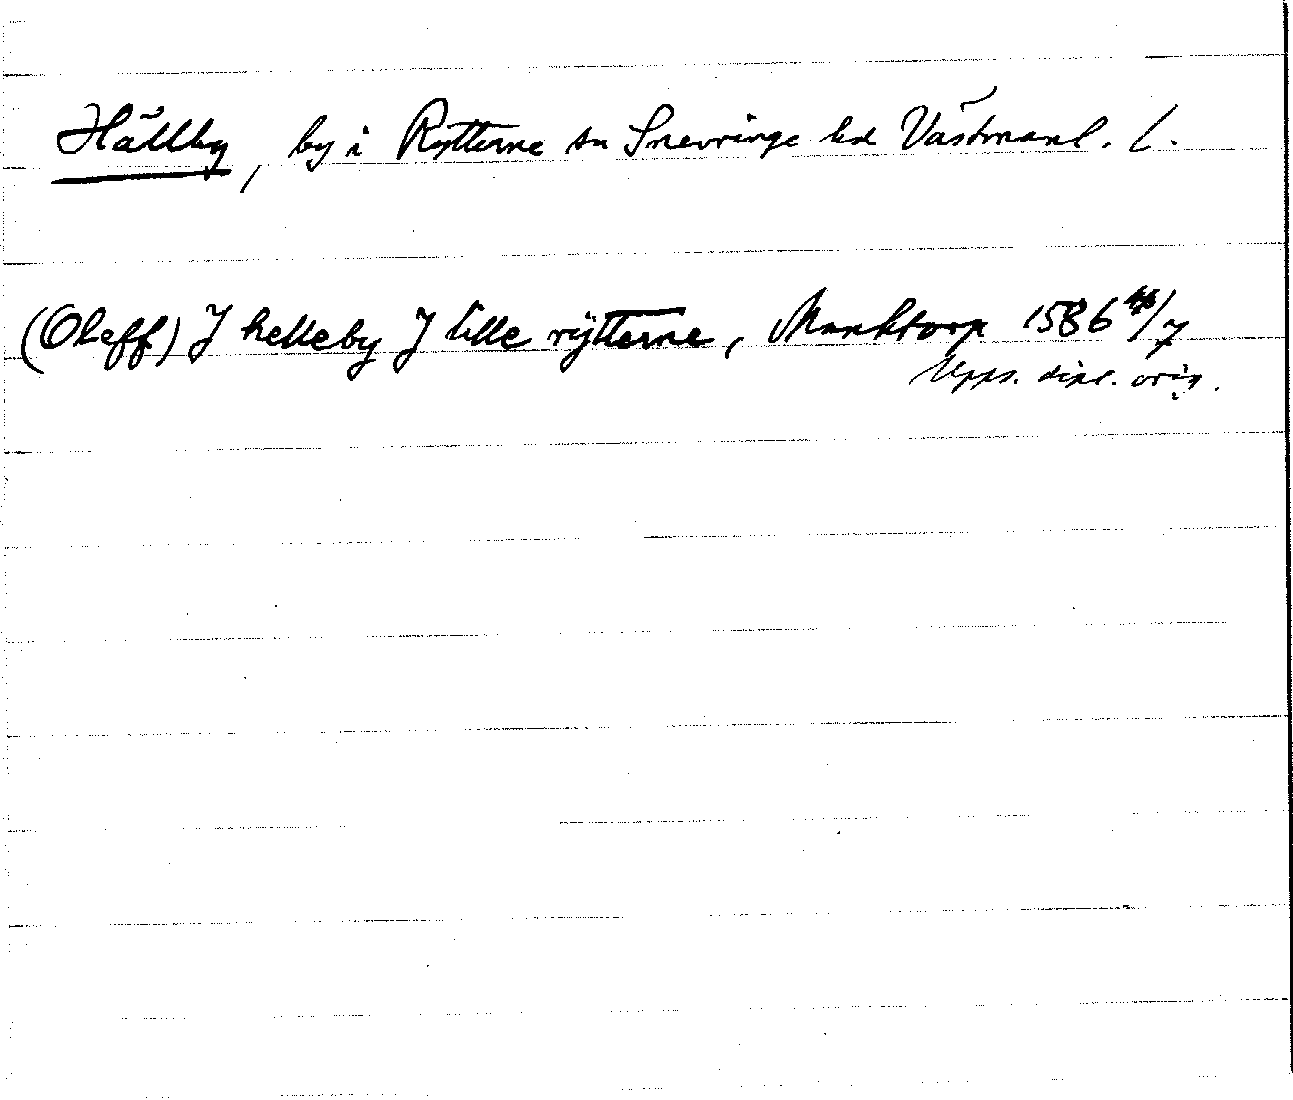 Hällby, by i Rytterne sn Snevringe hd Västmanl. l.
(Oleff) J helleby J lille rÿtterne, Munktorp 1586 /7
Upps. dipl. orig.